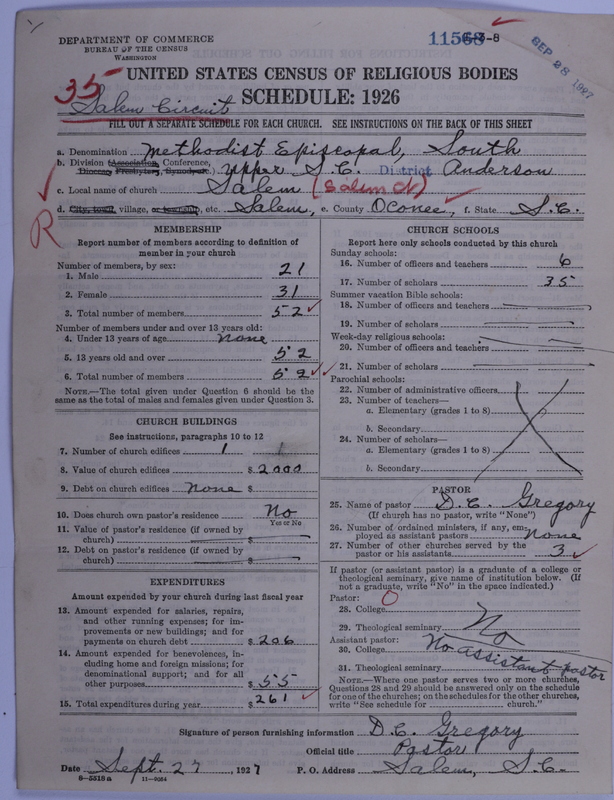 DEPARTMENT OF COMMERCE
BUREAU OF THE CENSUS
WASHINGTON
11568
6-3-8
SEP 28 1927
UNITED STATES CENSUS OF RELIGIOUS BODIES
35
SCHEDULE: 1926
Salem Circuit
FILL OUT A SEPARATE SCHEDULE FOR EACH CHURCH. SEE INSTRUCTIONS ON THE BACK OF THIS SHEET
a. Denomination Methodist Episcopal, South
b. Division (Association, Conference, Diocese, Presbytery, Synod, etc.) Upper S.C. District Anderson
c. Local name of church Salem (Salem Ct)
d. City, town, village, or township, etc. Salem, e. County Oconee, f. State S.C.
R
MEMBERSHIP
Report number of members according to definition of
member in your church
Number of members, by sex:
1. Male 21
2. Female 31
3. Total number of members 52
Number of members under and over 13 years old:
4. Under 13 years of age none
5. 13 years old and over 52
6. Total number of members 52
NOTE.—The total given under Question 6 should be the
same as the total of males and females given under Question 3.
CHURCH BUILDINGS
See instructions, paragraphs 10 to 12
7. Number of church edifices 1 1
8. Value of church edifices $ 2000
9. Debt on church edifices None $
10. Does church own pastor's residence? No
Yes or No
11. Value of pastor's residence (if owned by
church) $
12. Debt on pastor's residence (if owned by
church) $
EXPENDITURES
Amount expended by your church during last fiscal year
13. Amount expended for salaries, repairs,
and other running expenses; for im-
provements or new buildings; and for
payments on church debt $ 206
14. Amount expended for benevolences, in-
cluding home and foreign missions; for
denominational support; and for all
other purposes $ 55
15. Total expenditures during year $ 261
CHURCH SCHOOLS
Report here only schools conducted by this church
Sunday schools:
16. Number of officers and teachers 6
17. Number of scholars 35
Summer vacation Bible schools:
18. Number of officers and teachers
19. Number of scholars
Week-day religious schools:
20. Number of officers and teachers
21. Number of scholars
Parochial schools:
22. Number of administrative officers
23. Number of teachers—
a. Elementary (grades 1 to 8)
b. Secondary
24. Number of scholars—
a. Elementary (grades 1 to 8)
b. Secondary
PASTOR
25. Name of pastor D. C. Gregory
(If church has no pastor, write "None")
26. Number of ordained ministers, if any, em-
ployed as assistant pastors none
27. Number of other churches served by the
pastor or his assistants 3
If pastor (or assistant pastor) is a graduate of a college or
theological seminary, give name of institution below. (If
not a graduate, write "No" in the space indicated.)
Pastor: 0
28. College
29. Theological seminary No
Assistant pastor:
30. College No assistant pastor
31. Theological seminary
NOTE.—Where one pastor serves two or more churches,
Questions 28 and 29 should be answered only on the schedule
for one of the churches; on the schedules for the other churches,
write "See schedule for church."
Signature of person furnishing information D. C. Gregory
Official title Pastor
Date Sept. 27, 1927 P. O. Address Salem, S.C.
8-5518a 11-9084